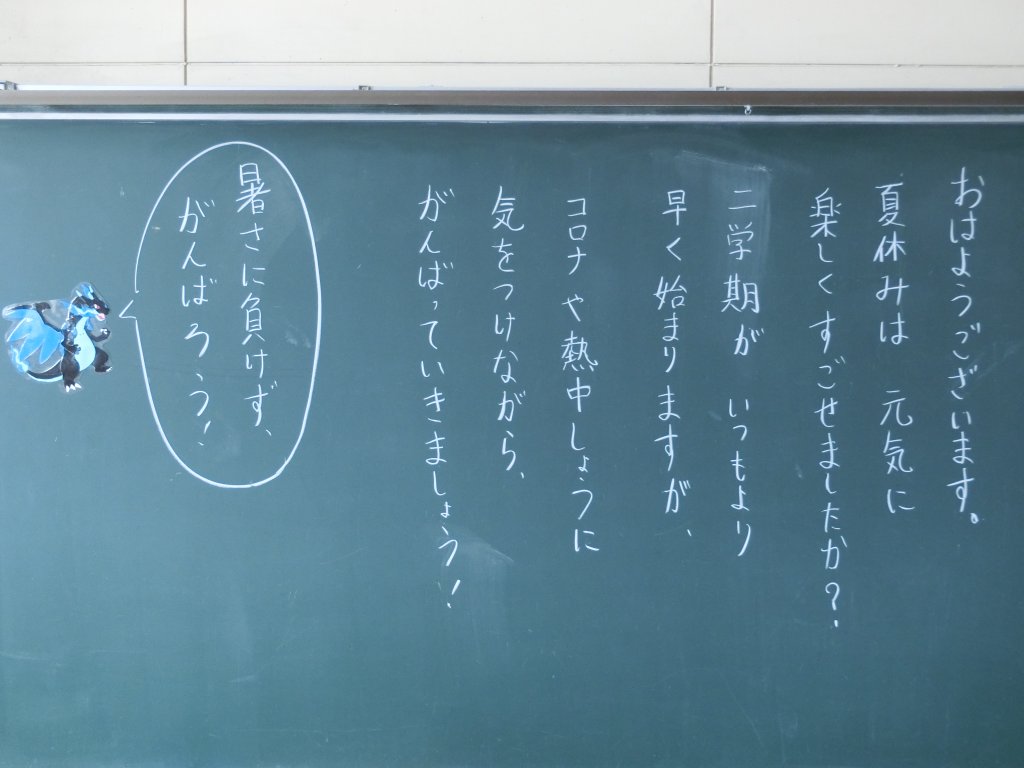 おはようございます。
夏休みは 元気に
楽しくすごせましたか？
二学期が いつもより
早く始まりますが、
コロナや熱中しょうに
気をつけながら、
がんばっていきましょう！
暑さに負けず、
がんばろう！